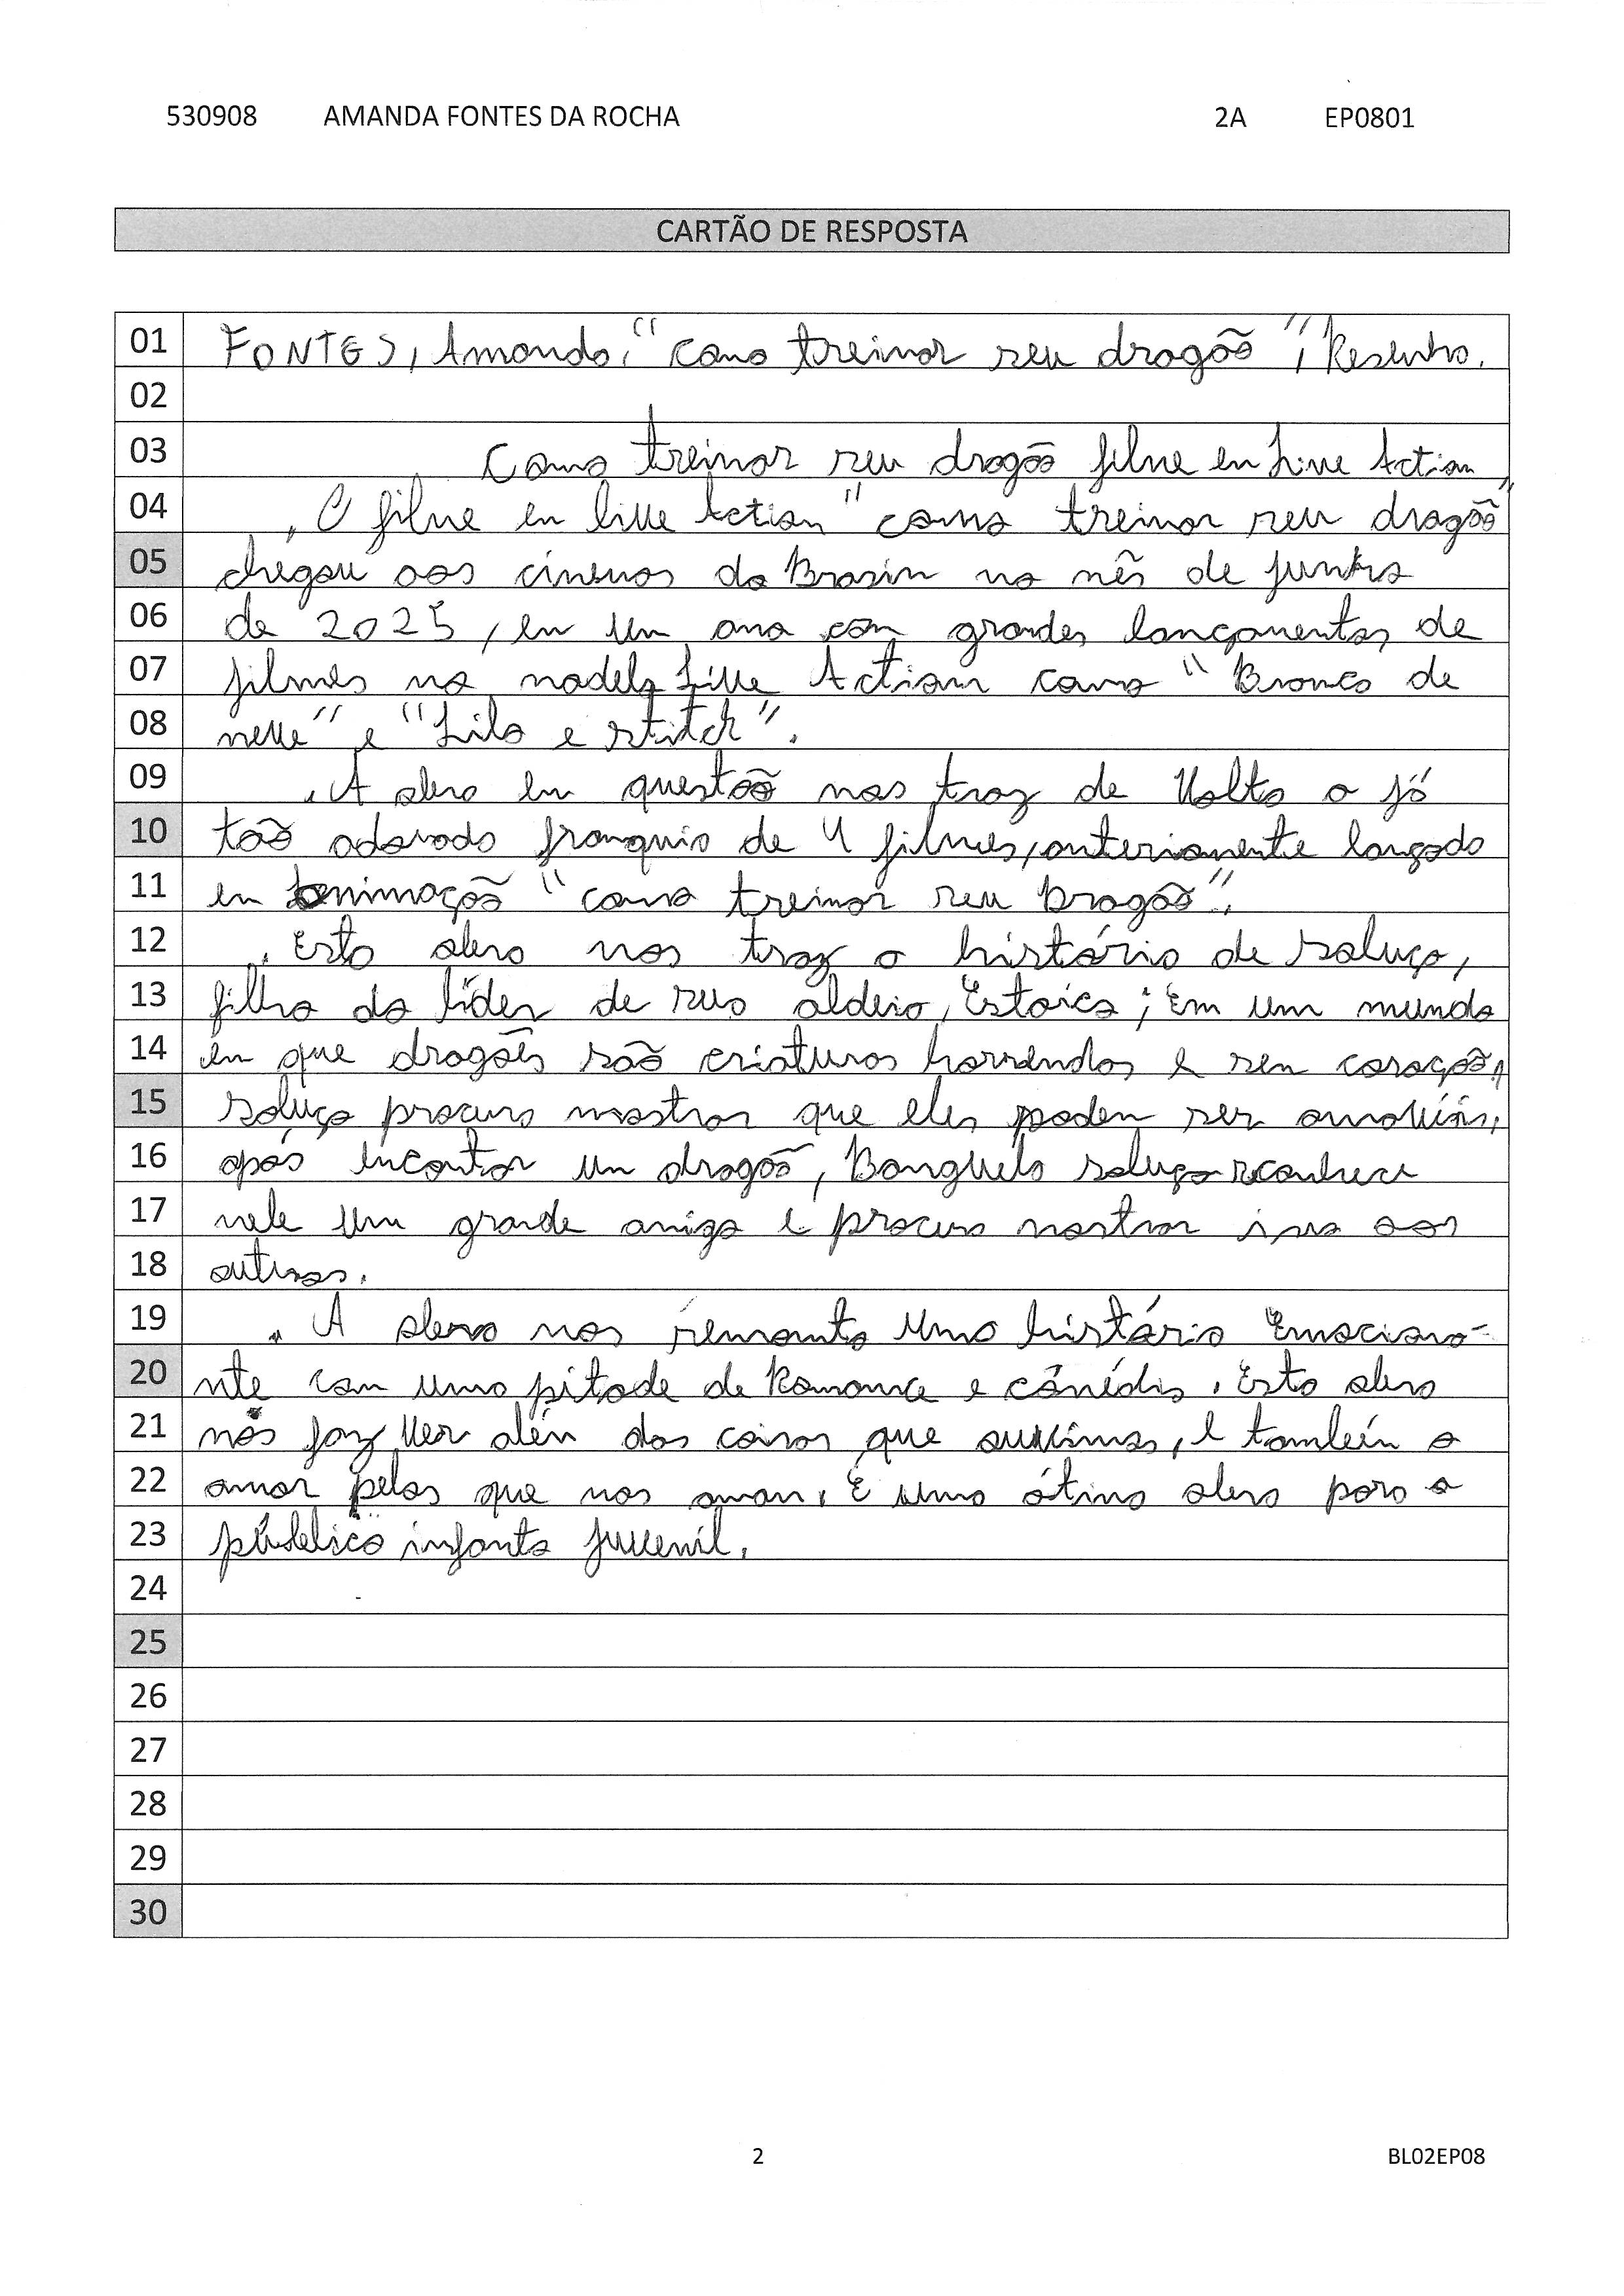 530908 AMANDA FONTES DA ROCHA 2A EP0801
CARTÃO DE RESPOSTA
01 FONTES, Amanda. "Como treinar seu dragão", Resenha.
02
03 Como treinar seu dragão filme em Live Action
04 O filme em live Action "como treinar seu dragão"
05 chegou aos cinemas do Brasin no mês de junho
06 de 2025, em um ano com grandes lançamentos de
07 filmes no modelo Live Action como "Branca de
08 neve" e "Lilo e stitch".
09 A obra em questão nos traz de volta a já
10 tão adorada franquia de 4 filmes, anteriomente lançada
11 em animação "como treinar seu Dragão".
12 Esta obra nos traz a história de soluço,
13 filho do líder de sua aldeia, Estoico; Em um mundo
14 em que dragões são criaturas horrendas e sem coração,
15 soluço procura mostrar que eles podem ser amavéis,
16 após encontar um dragão, Banguela soluço reconhece
17 nele um grande amigo e procura mostrar isso aos
18 outros.
19 A obra nos remonta uma história Emociona-
20 nte com uma pitade de Romance e cômédia. Esta obra
21 nos faz ver além das coisas que ouvimos, e também o
22 amor pelos que nos amam. É uma ótima obra para o
23 público infanto juvenil.
24
25
26
27
28
29
30
2 BL02EP08